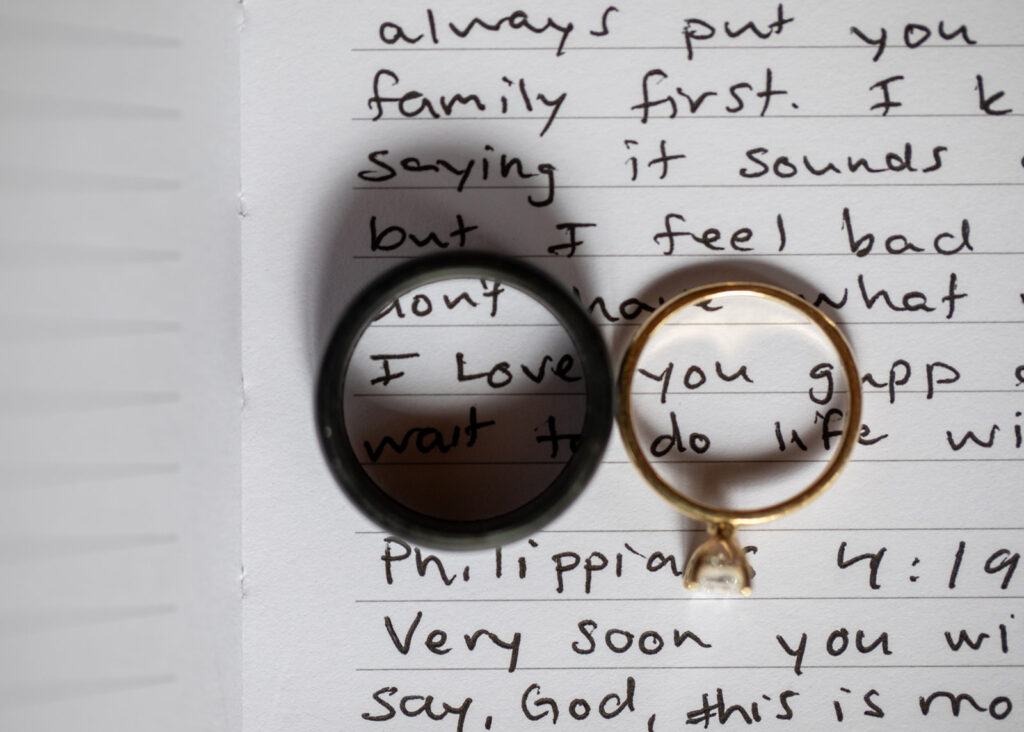 always put you
family first. I k
saying it sounds
but I feel bad
don't have what
I Love you gapp
wait to do life wi
Philippians 4:19
Very soon you wi
say, God, this is mo